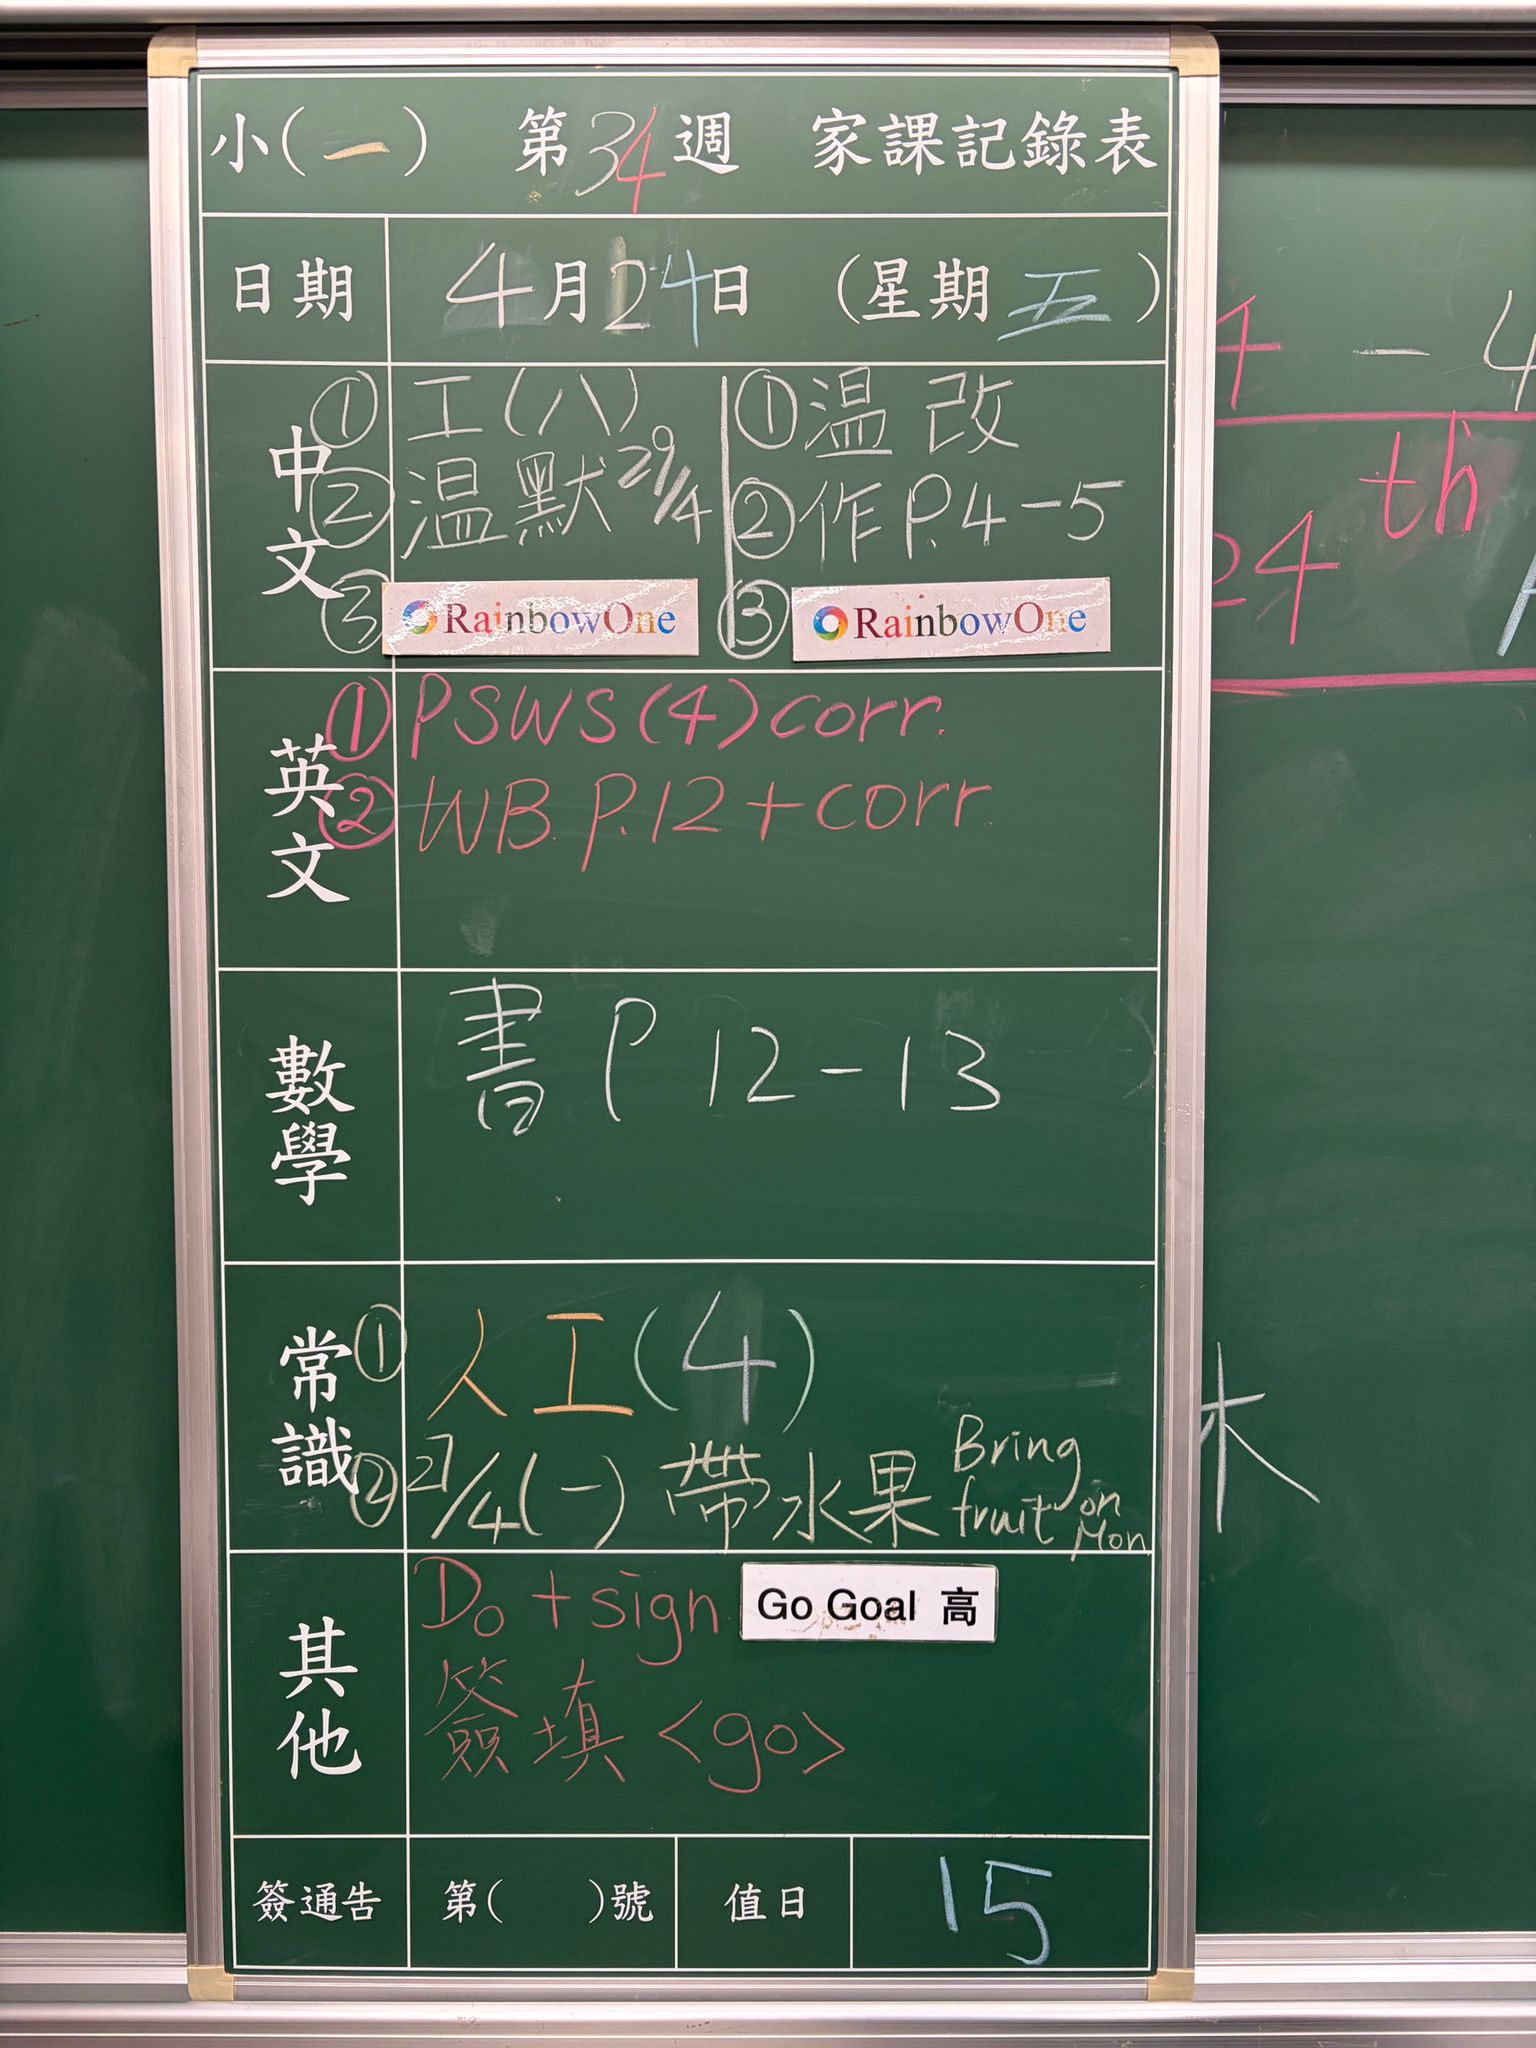 小(一) 第34週 家課記錄表
日期 4月24日 (星期五)
中文
① 工(八)
② 温默 29/4
③ RainbowOne
① 温改
② 作P.4-5
③ RainbowOne
英文
① PSWS(4)corr.
② WB. P.12+corr.
數學
書 P 12-13
常識
① 人工(4)
② 27/4(一) 帶水果 Bring fruit on Mon
其他
Do + sign Go Goal 高
簽填<go>
簽通告 第( )號 值日 15
4 - 4
th
24